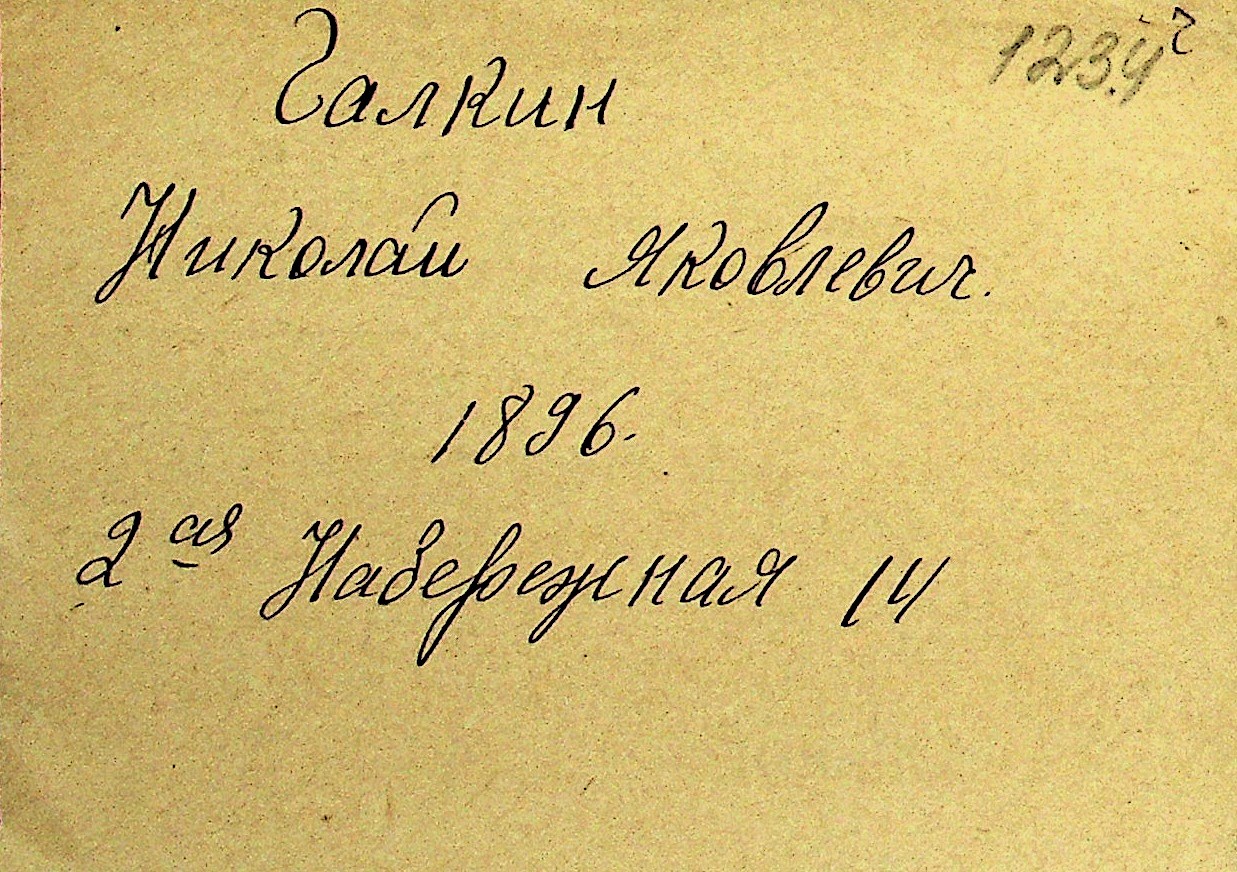 1234
Галкин
Николай Яковлевич.
1896.
2ая Набережная 14